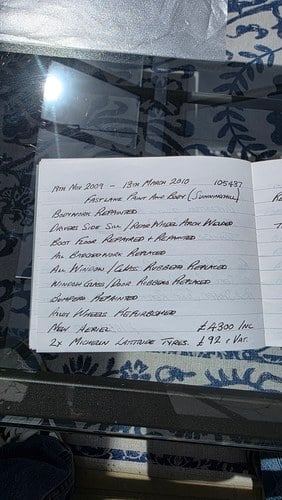 18th Nov 2009 - 13th March 2010 105437
Fastlane Paint And Body (Sunninghill)
Bodywork Repainted
Drivers Side Sill / Rear Wheel Arch Welded
Boot Floor Repaired + Repainted
All Badgework Replaced
All Window / Glass Rubbers Replaced
Window Glass / Door Rubbers Replaced
Bumpers Repainted
Alloy Wheels Refurbished
New Aeriel £4300 Inc
2x Michelin Latitude Tyres. £92 + Vat.